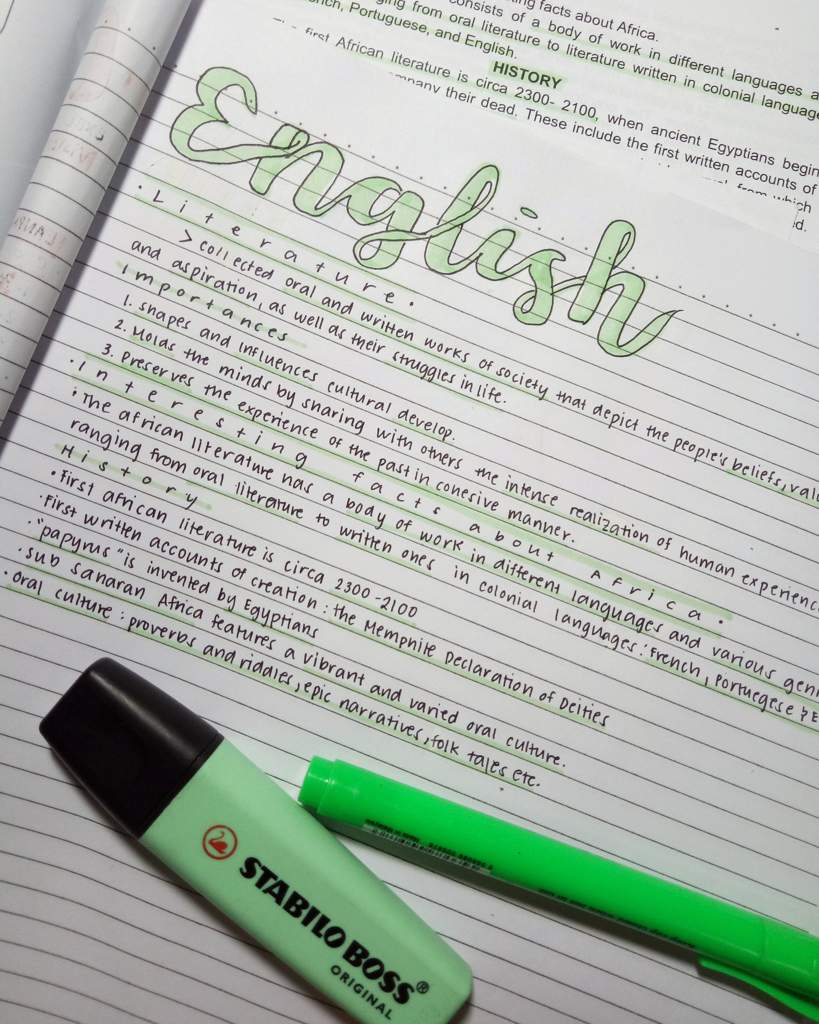 facts about Africa.
consists of a body of work in different languages
ging from oral literature to literature written in colonial
Portuguese, and English.
HISTORY
first African literature is circa 2300- 2100, when ancient Egyptians begin
their dead. These include the first written accounts of
from which
English
· Literature.
> collected oral and written works of society that depict the people's beliefs,
and aspiration, as well as their struggles in life.
Importances
1. shapes and influences cultural develop.
2. Molds the minds by sharing with others the intense realization of human
3. Preserves the experience of the past in conesive manner.
· Interesting facts about Africa.
· The african literature has a body of work in different languages and various
ranging from oral literature to written ones in colonial languages: French, Portuegese &
History
· First african literature is circa 2300-2100
· First written accounts of creation: the Memphite Declaration of Deities
· "papyrus" is invented by Egyptians
· sub saharan Africa features a vibrant and varied oral culture.
· oral culture: proverbs and riddles, epic narratives, folk tales etc.
STABILO BOSS®
ORIGINAL